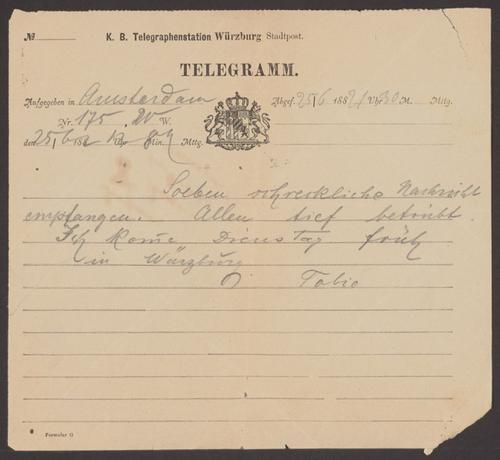 №
K. B. Telegraphenstation Würzburg Stadtpost.
TELEGRAMM.
Aufgegeben in Amsterdam Abgef. 25/6 188 Uhr 30 M. Mttg.
Nr. 175 20 W.
den 25/6 188 12 Uhr Min. Mttg.
Soeben schreckliche Nachricht
empfangen. Allen tief betrübt.
Ich kome Dienstag früh
in Würzburg
Tobie
Formular